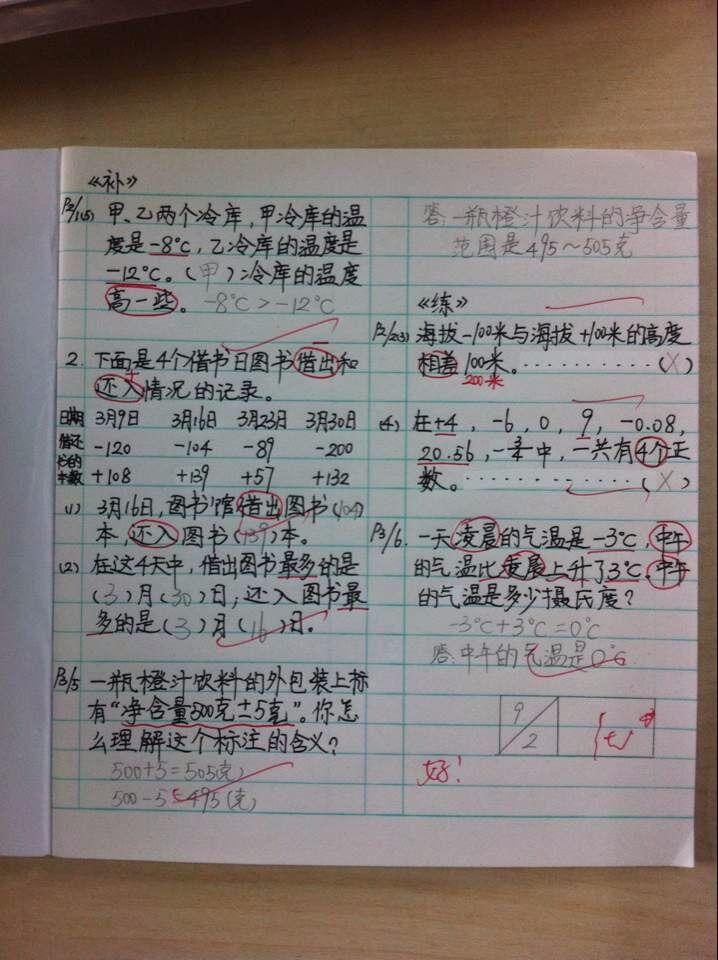 《补》
P2/1(5) 甲、乙两个冷库，甲冷库的温
度是-8℃，乙冷库的温度是
-12℃。（甲）冷库的温度
高一些。 -8℃>-12℃
2. 下面是4个借书日图书借出和
还入情况的记录。
日期 3月9日 3月16日 3月23日 3月30日
借还 -120 -104 -89 -200
书的
本数 +108 +139 +57 +132
(1) 3月16日，图书馆借出图书(104)
本，还入图书(139)本。
(2) 在这4天中，借出图书最多的是
(3)月(30)日；还入图书最
多的是(3)月(16)日。
P3/5 一瓶橙汁饮料的外包装上标
有“净含量500克±5克”。你怎
么理解这个标注的含义？
500+5=505(克)
500-5=495(克)
答：一瓶橙汁饮料的净含量
范围是495～505克
《练》
P2/2(3) 海拔-100米与海拔+100米的高度
相差100米。…………(×)
200米
(4) 在+4，-6，0，9，-0.08，
20.56，中，一共有4个正
数。…………(×)
P3/6. 一天凌晨的气温是-3℃，中午
的气温比凌晨上升了3℃。中午
的气温是多少摄氏度？
-3℃+3℃=0℃
答：中午的气温是0℃
9/2
好！